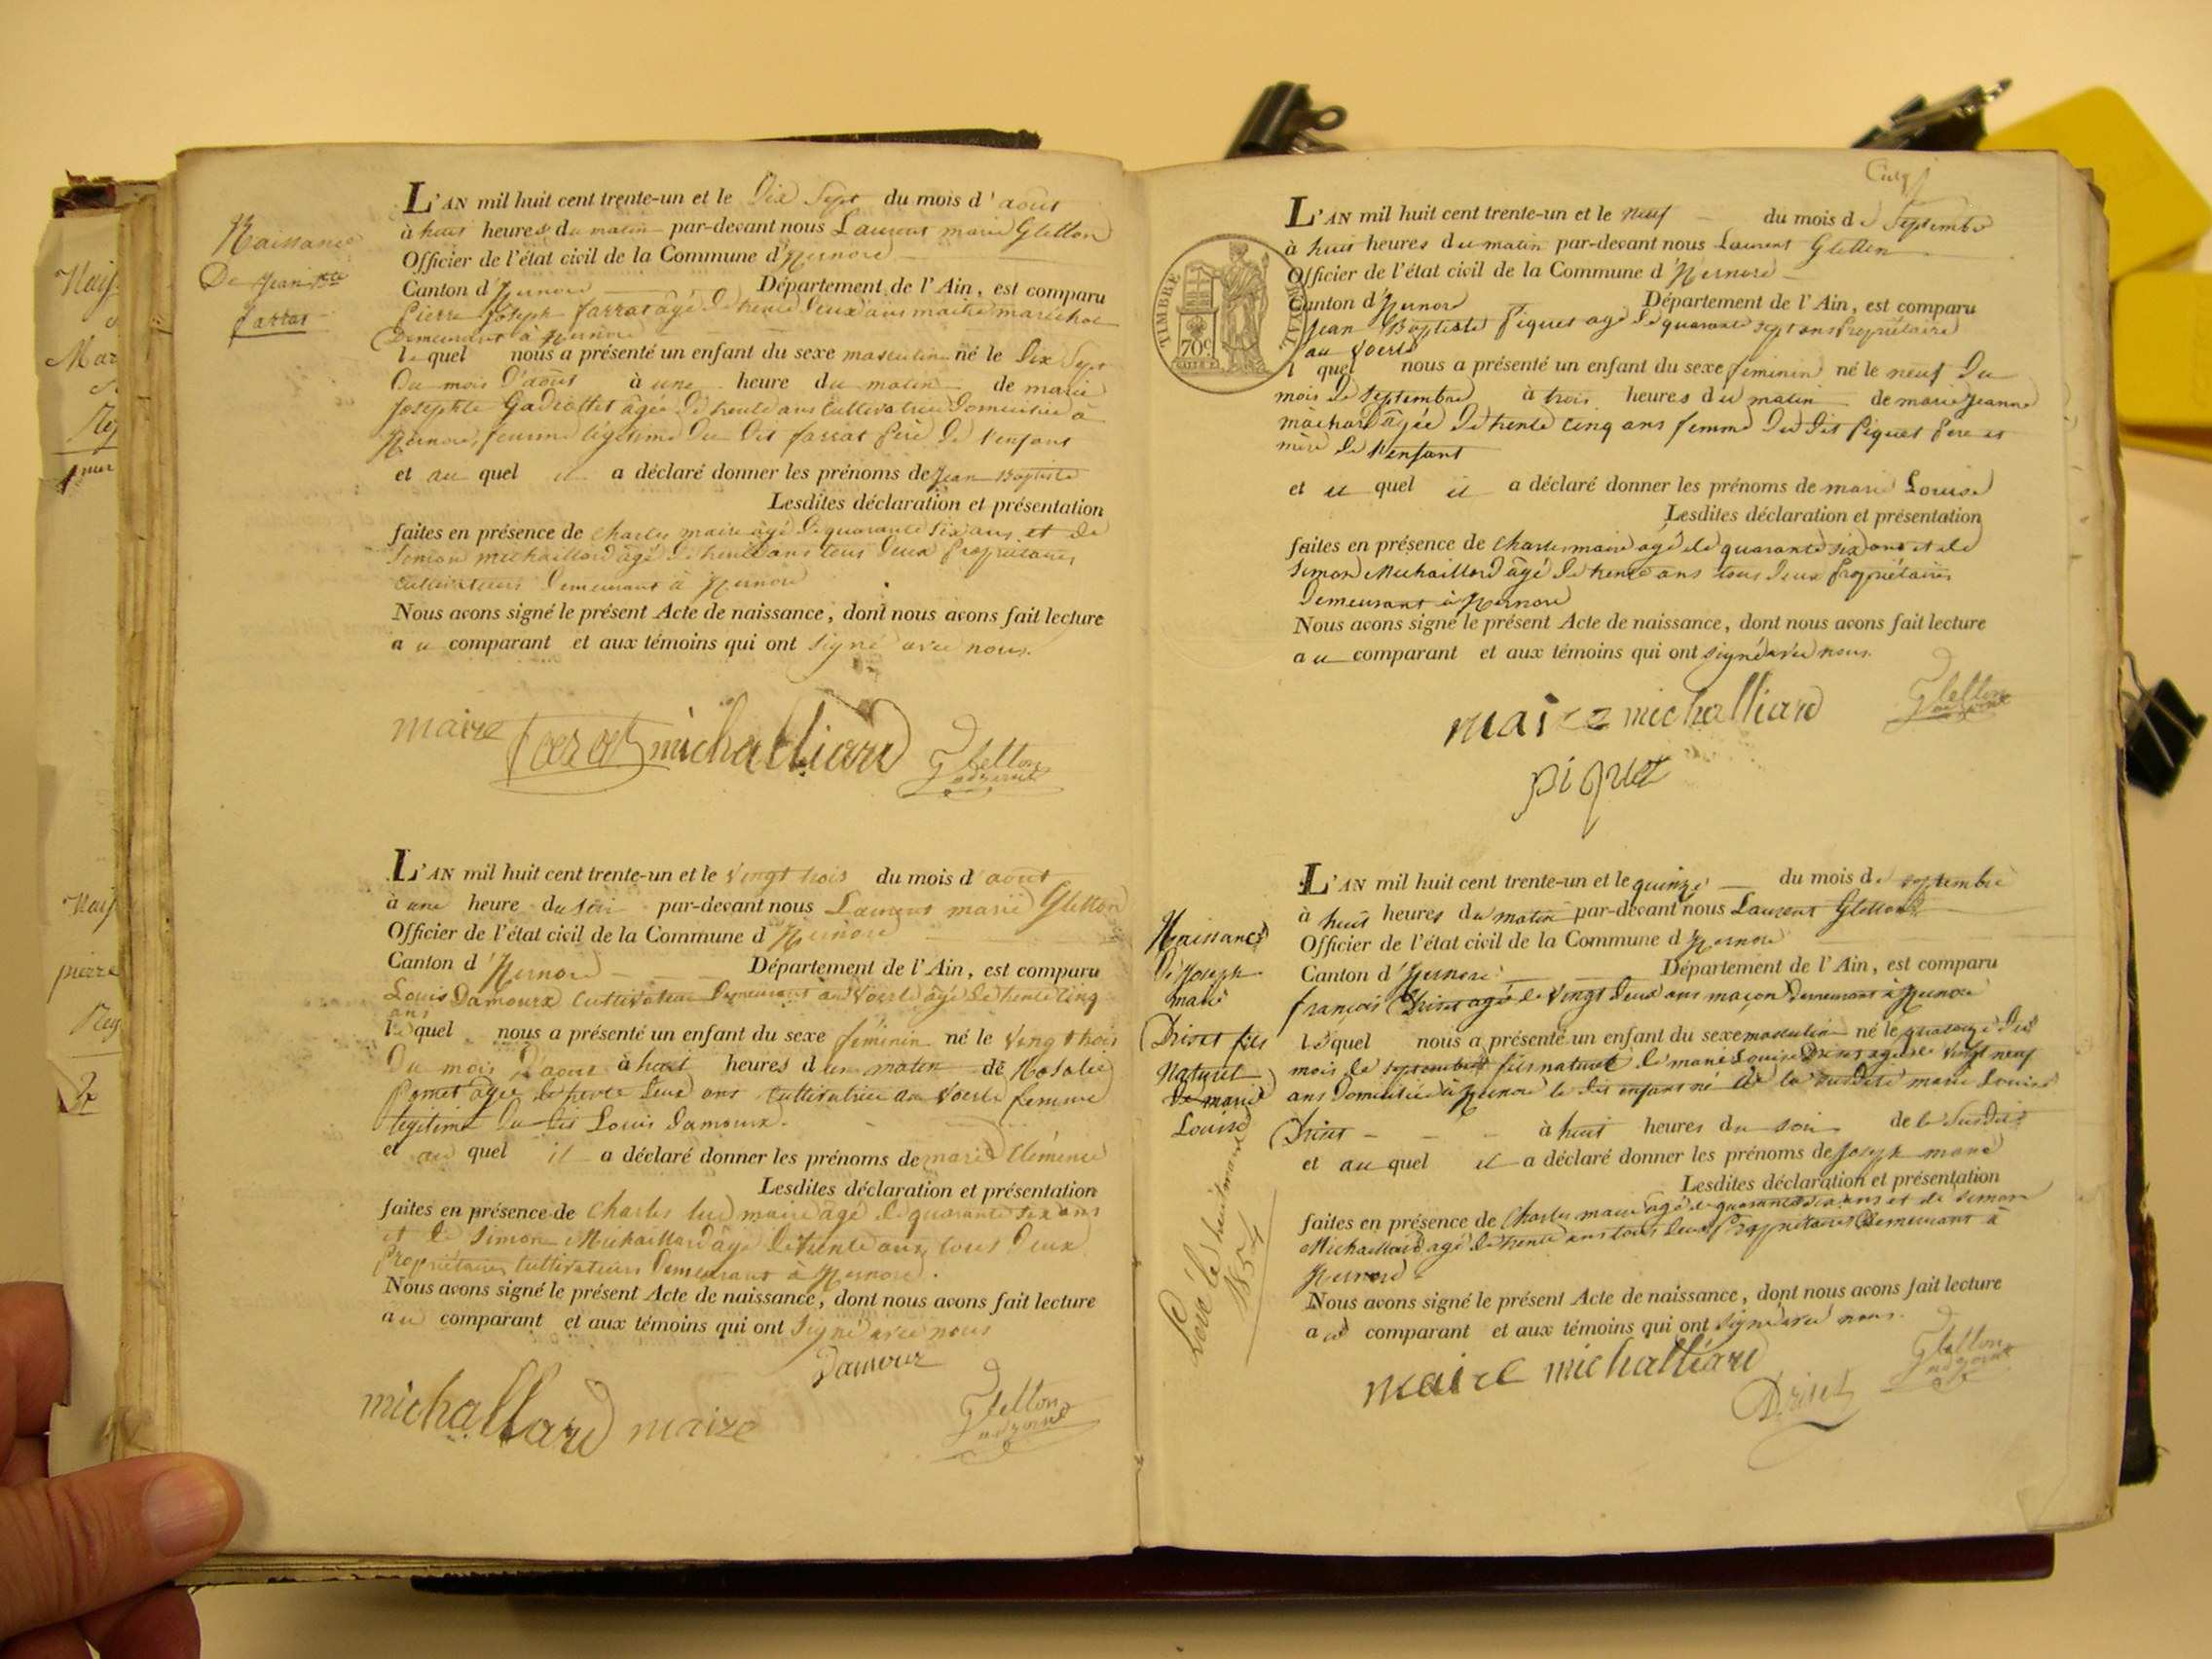 Naissance
De Jean Bte
farrat
L'AN mil huit cent trente-un et le Dix Sept du mois d'août
à huit heures du matin par-devant nous Laurent marie Gletton
Officier de l'état civil de la Commune d'Izernore
Canton d'Izernore Département de l'Ain, est comparu
Pierre Joseph farrat âgé de trente deux ans maitre marechal
Demeurant à Izernore
lequel nous a présenté un enfant du sexe masculin né le Dix Sept
Du mois D'août à une heure du matin de marie
Josephte âgée de trente ans Cultivatrice Domiciliée à
Izernore, femme légitime Du Dit farrat Père De l'enfant
et au quel il a déclaré donner les prénoms de Jean Baptiste
Lesdites déclaration et présentation
faites en présence de Charles maire âgé de quarante six ans et de
Simon Michaillard âgé de trente ans tous deux Propriétaires
cultivateurs Demeurant à Izernore
Nous avons signé le présent Acte de naissance, dont nous avons fait lecture
au comparant et aux témoins qui ont signé avec nous.
maire farat michalliard Gletton
adjoint
L'AN mil huit cent trente-un et le vingt trois du mois d'août
à une heure du soir par-devant nous Laurent marie Gletton
Officier de l'état civil de la Commune d'Izernore
Canton d'Izernore Département de l'Ain, est comparu
Louis Damoux Cultivateur Demeurant au Voerle âgé de trente Cinq
ans
lequel nous a présenté un enfant du sexe féminin né le Vingt trois
Du mois D'août à huit heures du matin de Rosalie
âgée de trente deux ans Cultivatrice au Voerle femme
légitime du dit Louis Damoux.
et au quel il a déclaré donner les prénoms de marie Clémence
Lesdites déclaration et présentation
faites en présence de Charles Luc maire âgé de quarante six ans
et de Simon Michaillard âgé de trente ans tous Deux
Propriétaires Cultivateurs Demeurant à Izernore.
Nous avons signé le présent Acte de naissance, dont nous avons fait lecture
au comparant et aux témoins qui ont signé avec nous
Damour
michallard maire Gletton
adjoint
TIMBRE ROYAL
70c
L'AN mil huit cent trente-un et le neuf du mois de Septembre
à huit heures du matin par-devant nous Laurent Gletton
Officier de l'état civil de la Commune d'Izernore
Canton d'Izernore Département de l'Ain, est comparu
Jean Baptiste Piquet agé de quarante sept ans Propriétaire
au Voerle
lequel nous a présenté un enfant du sexe féminin né le neuf Du
mois de Septembre à trois heures du matin de marie Jeanne
âgée de trente cinq ans femme du dit Piquet Pere et
mère de l'enfant
et quel il a déclaré donner les prénoms de marie Louise
Lesdites déclaration et présentation
faites en présence de Charles maire agé de quarante six ans et de
Simon Michaillard âgé de trente ans tous deux Propriétaires
Demeurant à Izernore
Nous avons signé le présent Acte de naissance, dont nous avons fait lecture
au comparant et aux témoins qui ont signé avec nous.
maire michalliard Gletton
adjoint
piquet
Naissance
De Joseph
marie
Driset fils
Naturel
De marie
Louise
L'AN mil huit cent trente-un et le quinze du mois de septembre
à huit heures du matin par-devant nous Laurent Gletton
Officier de l'état civil de la Commune d'Izernore
Canton d'Izernore Département de l'Ain, est comparu
françois Driset agé de Vingt deux ans maçon Demeurant à Izernore
lequel nous a présenté un enfant du sexe masculin né le quatorze Du
mois de septembre fils naturel de marie Louise Driset agée de Vingt neuf
ans Domiciliée à Izernore le dit enfant né de la Susdite marie Louise
Driset à huit heures du soir de la Susdite
et au quel il a déclaré donner les prénoms de Joseph marie
Lesdites déclaration et présentation
faites en présence de Charles maire agé de quarante six ans et de Simon
Michaillard agé de trente ans tous deux Propriétaires Demeurant à
Izernore
Nous avons signé le présent Acte de naissance, dont nous avons fait lecture
au comparant et aux témoins qui ont signé avec nous.
maire michalliard Gletton
adjoint
Driset
1854